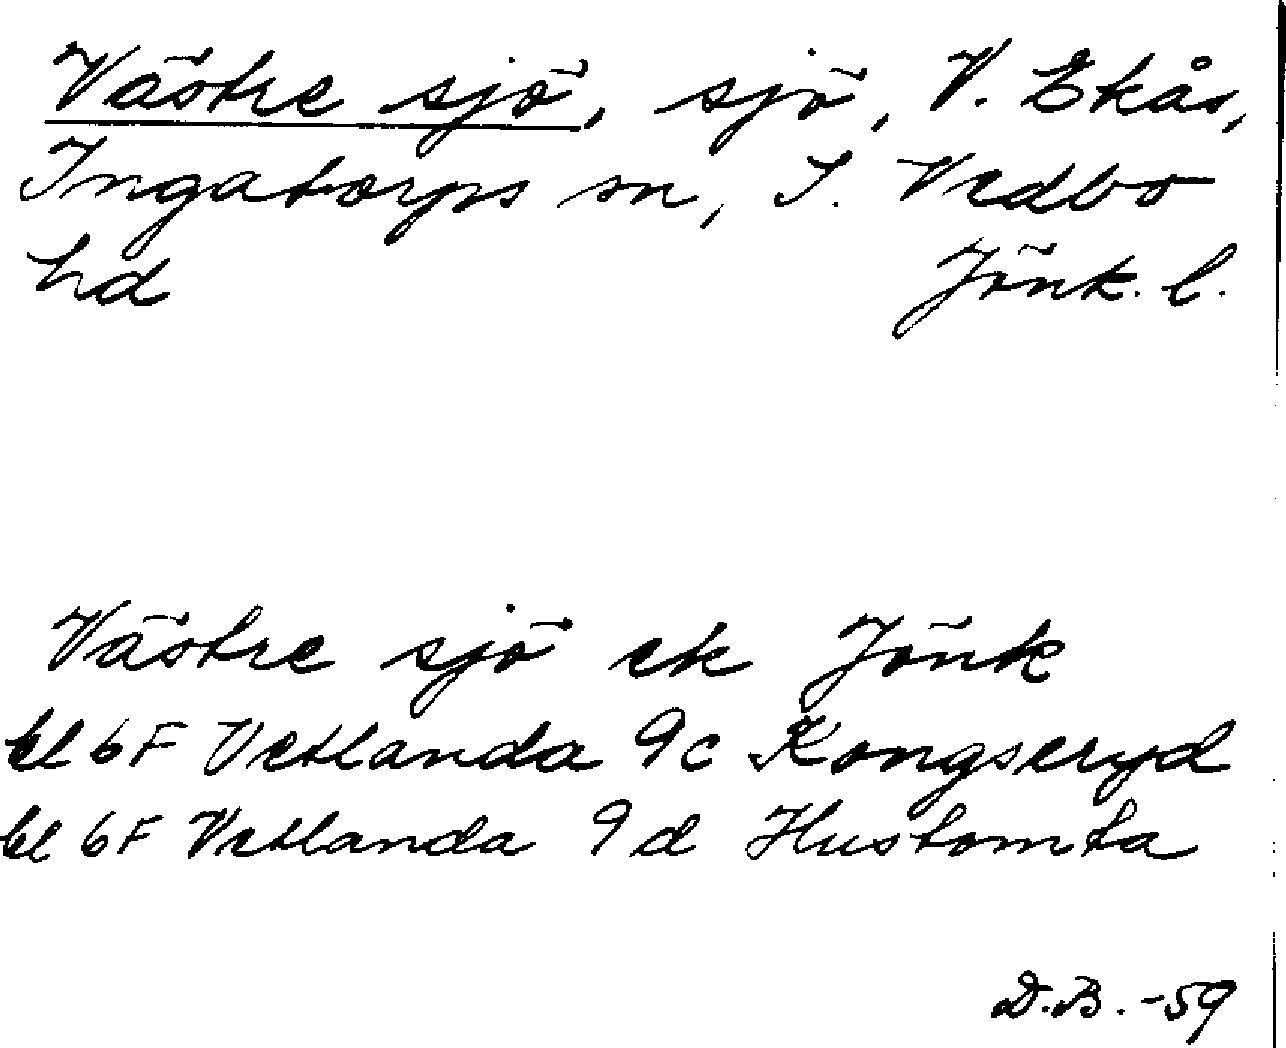 Västre sjö, sjö, V. Ekås,
Ingatorps sn, S. Vedbo
hd Jönk. l.
Västre sjö ek Jönk
bl 6F Vetlanda 9c Kongseryd
bl 6F Vetlanda 9d Hustomta
D.B. -59